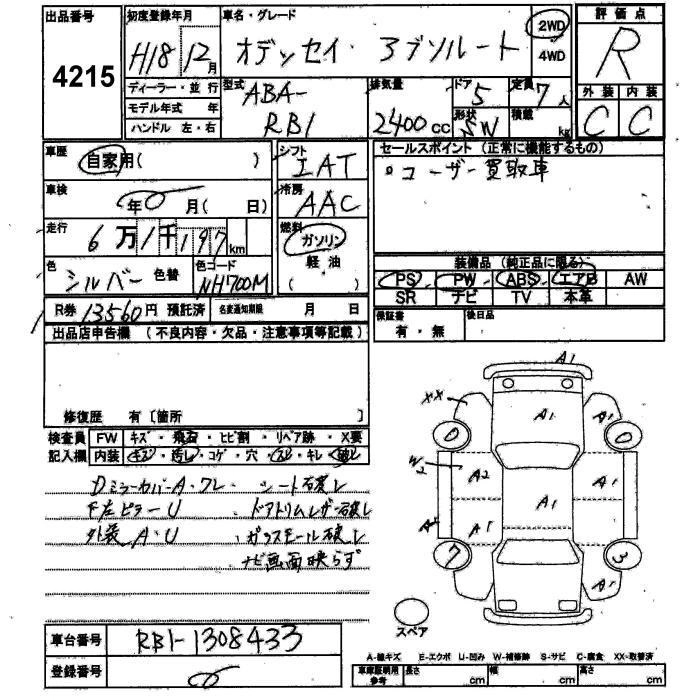 出品番号
4215
初度登録年月
H18 12月
車名・グレード
オデッセイ・アブソルート
2WD
4WD
評価点
R
外装 内装
C C
ディーラー・並行
モデル年式 年
ハンドル 左・右
型式
ABA-
RB1
排気量
2400cc
ドア
5
形状
SW
定員
7人
積載
kg
車歴
自家用( )
車検
年 月( 日)
走行
6万1千197km
色
シルバー 色替
色コード
NH700M
シフト
IAT
冷房
AAC
燃料
ガソリン
軽油
( )
セールスポイント (正常に機能するもの)
ユーザー買取車
装備品 (純正品に限る)
PS PW ABS エアB AW
SR ナビ TV 本革
R券 13560円 預託済
名変通知期限 月 日
保証書
有・無
後日品
出品店申告欄 (不良内容・欠品・注意事項等記載)
修復歴 有 〔箇所 〕
検査員
記入欄
FW キズ・飛石・ヒビ割・リペア跡・X要
内装 キズ・汚し・コゲ・穴・スレ・キレ・破レ
DミラーカバーA・ワレ シート破レ
下左ピラーU ドアトリムレザー破レ
外装A・U ガラスモール破レ
ナビ画面映らず
A1
XX
A1
A1
0
0
W2
A2
A1
A1
A2
A1
7
3
A1
スペア
車台番号
RB1-1308433
登録番号
A-線キズ E-エクボ U-凹み W-補修跡 S-サビ C-腐食 XX-取替済
車庫証明用
参考
長さ cm
幅 cm
高さ cm